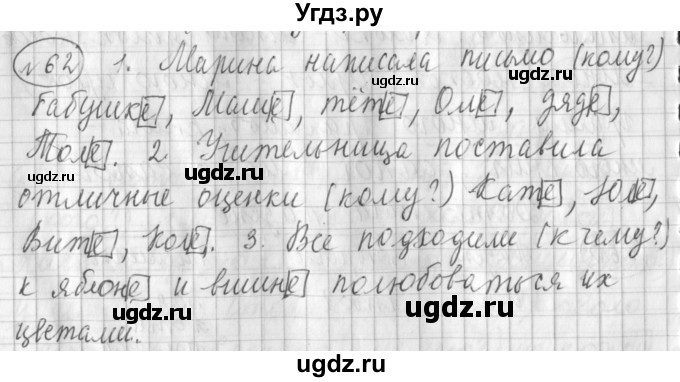 Угдз.ру
№62 1. Марина написала письмо (кому?)
бабушке, Маше, тёте, Оле, дяде,
Толе. 2. Учительница поставила
отличные оценки (кому?) Кате, Юле,
Вите, Коле. 3. Все подходили (к чему?)
к яблоне и вишне полюбоваться их
цветами.
ugdz.ru
ugdz.ru
ugdz.ru
ugdz.ru
ugdz.ru
ugdz.ru
ugdz.ru
ugdz.ru
ugdz.ru
ugdz.ru